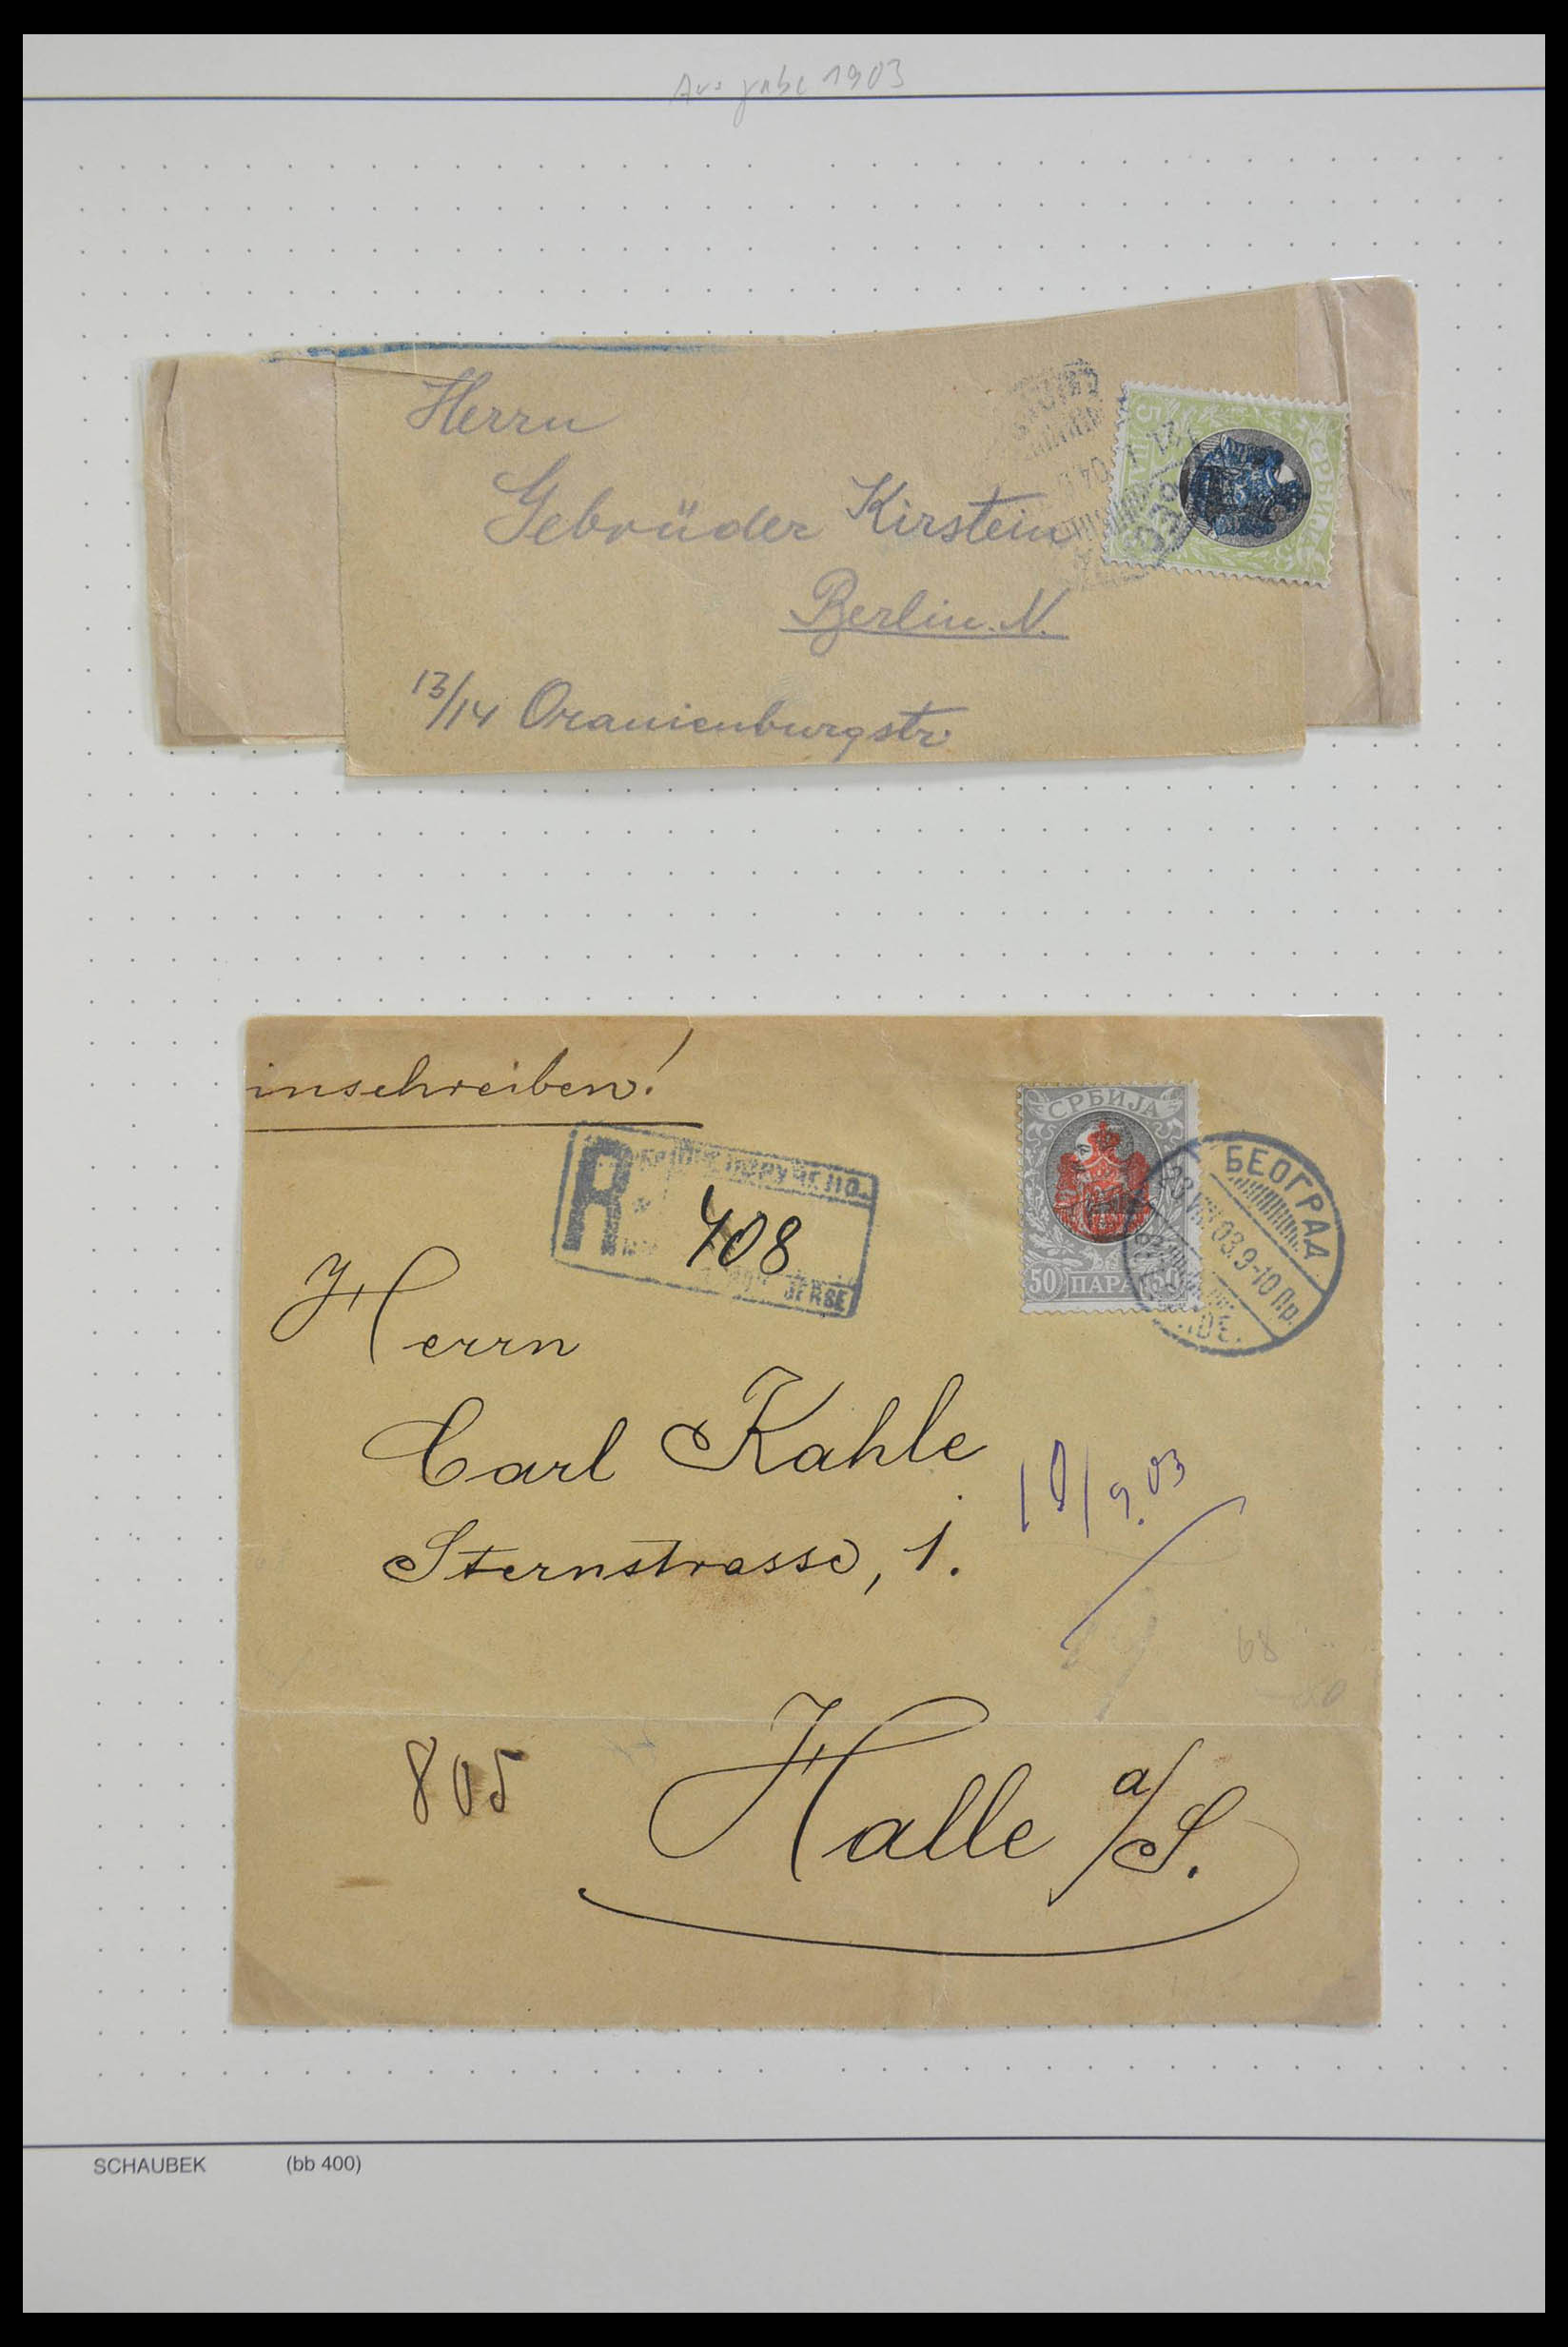 Ausgabe 1903
Herrn
Gebrüder Kirstein
Berlin. N.
13/14 Oranienburgstr
5
СРБИЈА
inschreiben!
R
408
СРБИЈА
50 ПАРА 50
БЕОГРАД
23 VIII 03.9-10 Пр.
Herrn
Carl Kahle
Sternstrasse, 1.
10/9.03
68
805
Halle a/S.
SCHAUBEK (bb 400)